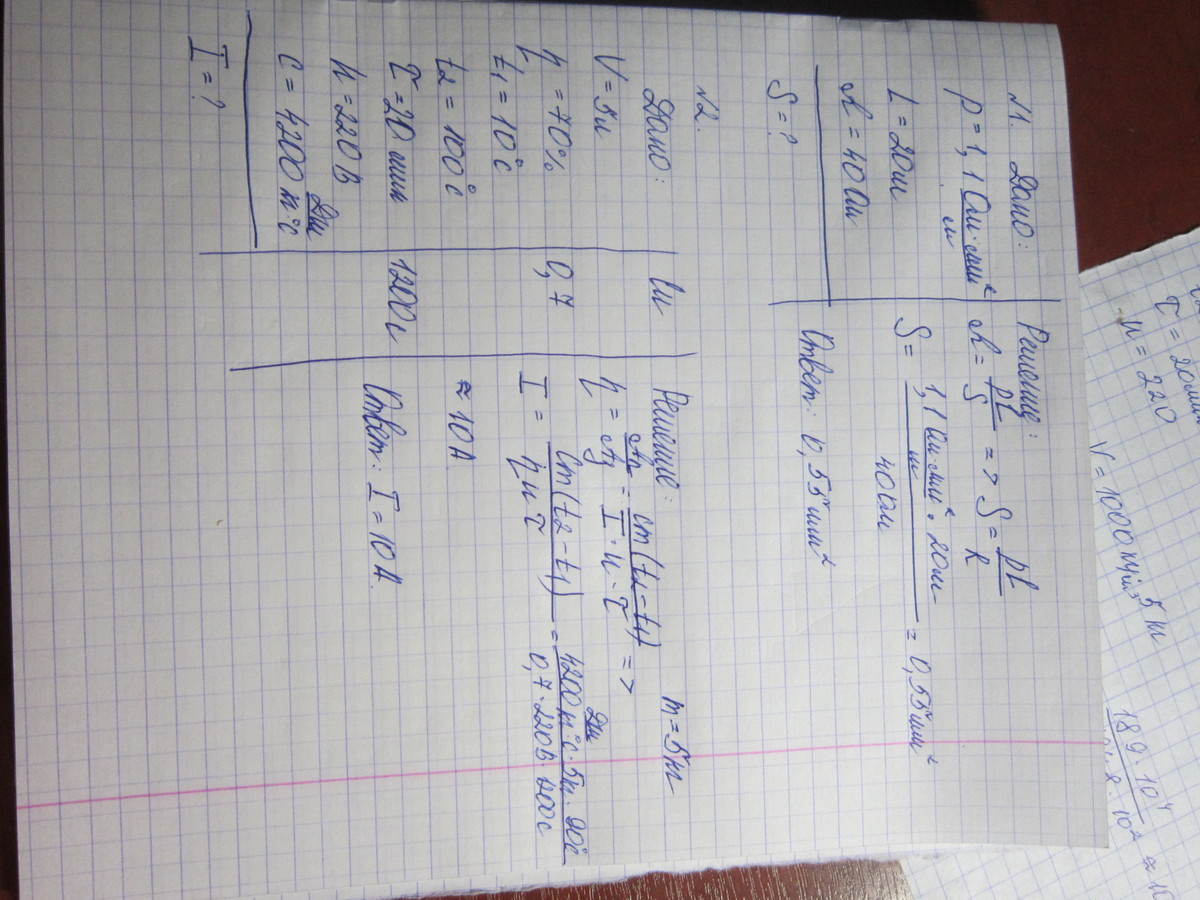 №1. Дано:
ρ = 1,1 Ом·мм²/м
L = 20м
R = 40 Ом
S = ?
Решение:
R = ρL/S => S = ρL/R
S = 1,1 Ом·мм²/м · 20м / 40 Ом = 0,55 мм²
Ответ: 0,55 мм²
№2.
Дано:
V = 5л
η = 70%
t₁ = 10°C
t₂ = 100°C
τ = 20 мин
U = 220 В
c = 4200 Дж/кг·°C
I = ?
Си
0,7
1200с
Решение:
m = 5кг
η = Aп/Aз = cm(t₂-t₁)/I·U·τ =>
I = cm(t₂-t₁)/ηUτ = 4200 Дж/кг°C·5кг·90°C / 0,7·220В·1200с
≈ 10А
Ответ: I = 10А.
τ = 20мин
U = 220
5 кг
189·10⁴